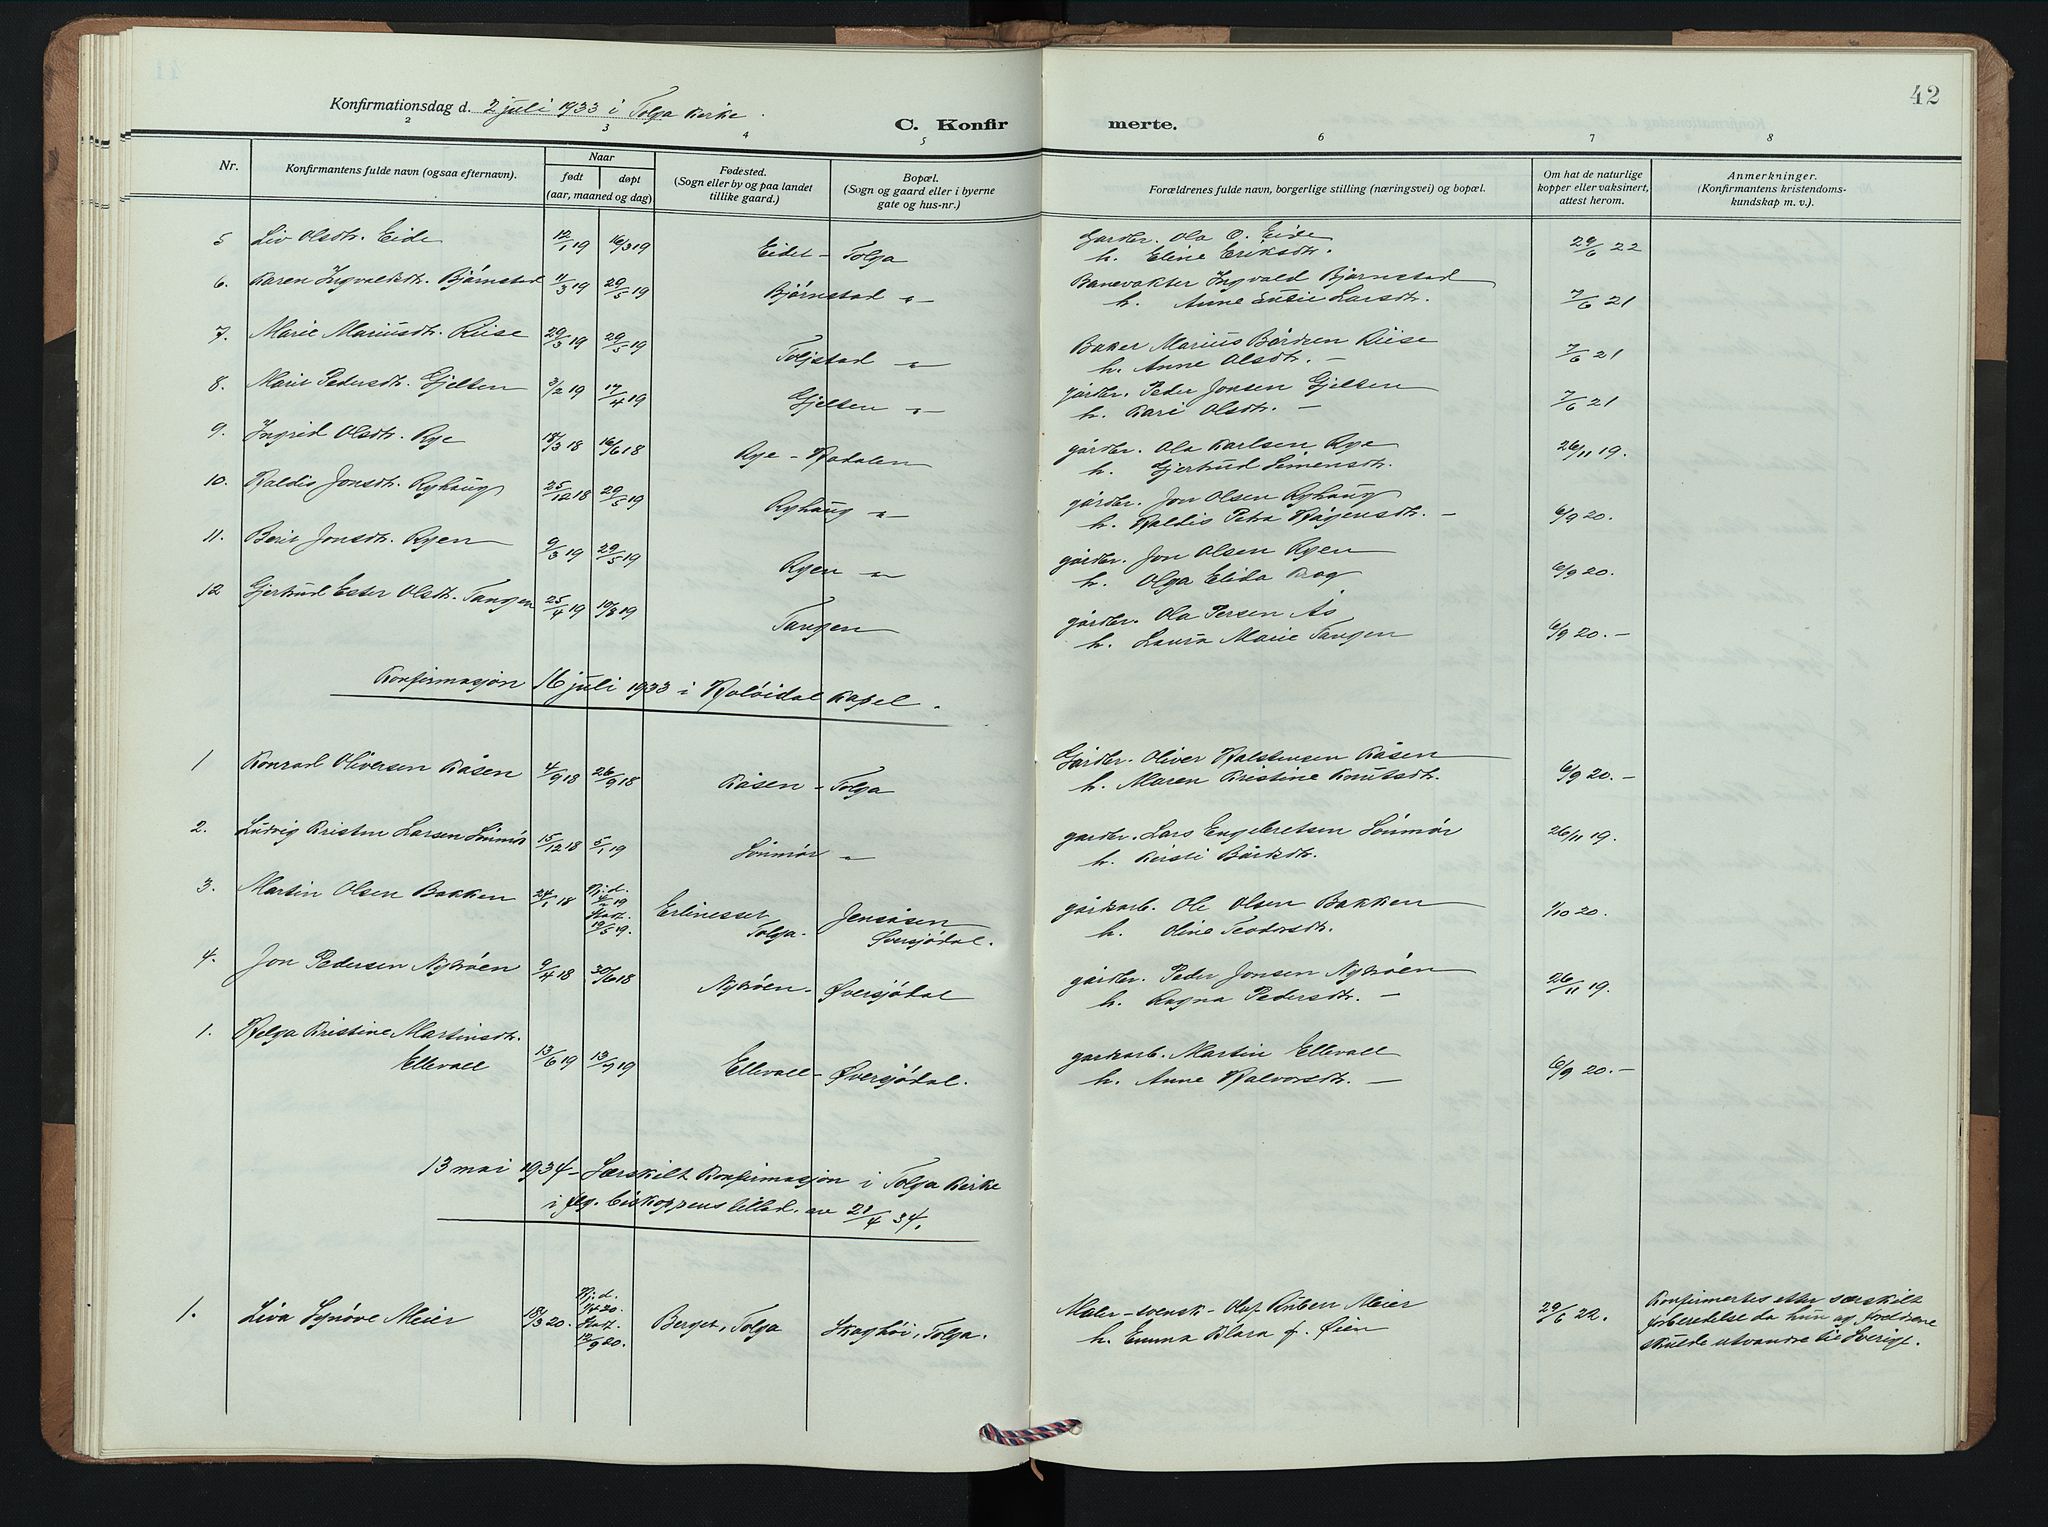 42
Konfirmationsdag d. 2 juli 1933 i Tolga Kirke.
C. Konfirmerte.
2 3 4 5 6 7 8
Nr.
Konfirmantens fulde navn (ogsaa efternavn).
Naar
født døpt
(aar, maaned og dag)
Fødested.
(Sogn eller by og paa landet
tillike gaard.)
Bopæl.
(Sogn og gaard eller i byerne
gate og hus-nr.)
Forældrenes fulde navn, borgerlige stilling (næringsvei) og bopæl.
Om hat de naturlige
kopper eller vaksinert,
attest herom.
Anmerkninger.
(Konfirmantens kristendoms-
kundskap m. v.).
5 Liv Olsdtr. Eide 12/1 19 16/3 19 Eidet - Tolga Gardbr. Ola O. Eide 29/6 22
h. Eline Eriksdtr.
6. Karen Ingvaldsdtr. Bjørnstad 11/3 19 29/5 19 Bjørnstad -"- Banevokter Ingvald Bjørnstad 7/6 21
h. Anne Larsdtr.
7. Marie Mariusdtr. Riise 29/3 19 29/5 19 Toljstad -"- Baker Marius Bårdsen Riise 7/6 21
h. Anne Olsdtr. -
8. Marit Pedersdtr. Gjelten 3/2 19 17/4 19 Gjelten -"- gårdbr. Peder Jonsen Gjelten 7/6 21
h. Kari Olsdtr. -
9. Ingrid Olsdtr. Rye 18/3 18 16/6 18 Rye - Hodalen gårdbr. Ola Karlsen Rye 26/11 19.
h. Gjertrud Simensdtr.
10. Haldis Jonsdtr. Ryhaug 25/12 18 29/5 19 Ryhaug -"- gårdbr. Jon Olsen Ryhaug 6/9 20.
h. Haldis Petra Hågensdtr. -
11. Berit Jonsdtr. Ryen 9/3 19 29/5 19 Ryen -"- gårdbr. Jon Olsen Ryen 6/9 20.
h. Olga Elida Krog
12 Gjertrud Ester Olsdtr. Tangen 25/4 19 10/8 19 Tangen gårdbr. Ola Persen Ås 6/9 20. -
h. Laura Marie Tangen
Konfirmasjon 16 juli 1933 i Holøidal kapel.
1 Konrad Oliversen Kåsen 4/9 18 26/9 18 Kåsen - Tolga Gårdbr. Oliver Halstensen Kåsen 6/9 20. -
h. Maren Kristine Knutsdtr.
2. Ludvig Kristen Larsen Lönmör 15/12 18 5/1 19 Lönmör -"- gardbr. Lars Engebretsen Lönmör 26/11 19.
h. Kirsti Bårdsdtr.
3. Martin Olsen Bakken 24/1 18 Hj.d. Stadf. 19/5 19. Erlinesset Tolga. Jensåsen Øversjødal. gårdarb. Ole Olsen Bakken 1/10 20.
h. Oline Teodorsdtr.
4. Jon Pedersen Nytrøen 9/4 18 30/6 18 Nytrøen - Øversjødal gårdbr. Peder Jonsen Nytrøen 26/11 19.
h. Ragna Pedersdtr. -
1. Helga Kristine Martinsdtr.
Ellevoll 13/6 19 13/7 19 Ellevoll - Øversjødal. gardarb. Martin Ellevoll 6/9 20. -
h. Anne Halvorsdtr. -
13 mai 1934 - Særskilt Konfirmasjon i Tolga Kirke
i flg. biskoppens tillad. av 21/4 34.
1. Liva Synøve Meier 18/3 20. Hj.d. Stadf. 12/9 20. Berget, Tolga Skaghøi, Tolga. Maler - svensk - Olaf Ruben Meier 29/6 22.
h. Emma Klara f. Øien
Konfirmertes etter særskilt
forberedelse da hun og foreldrene
skulde utvandre til Sverige.